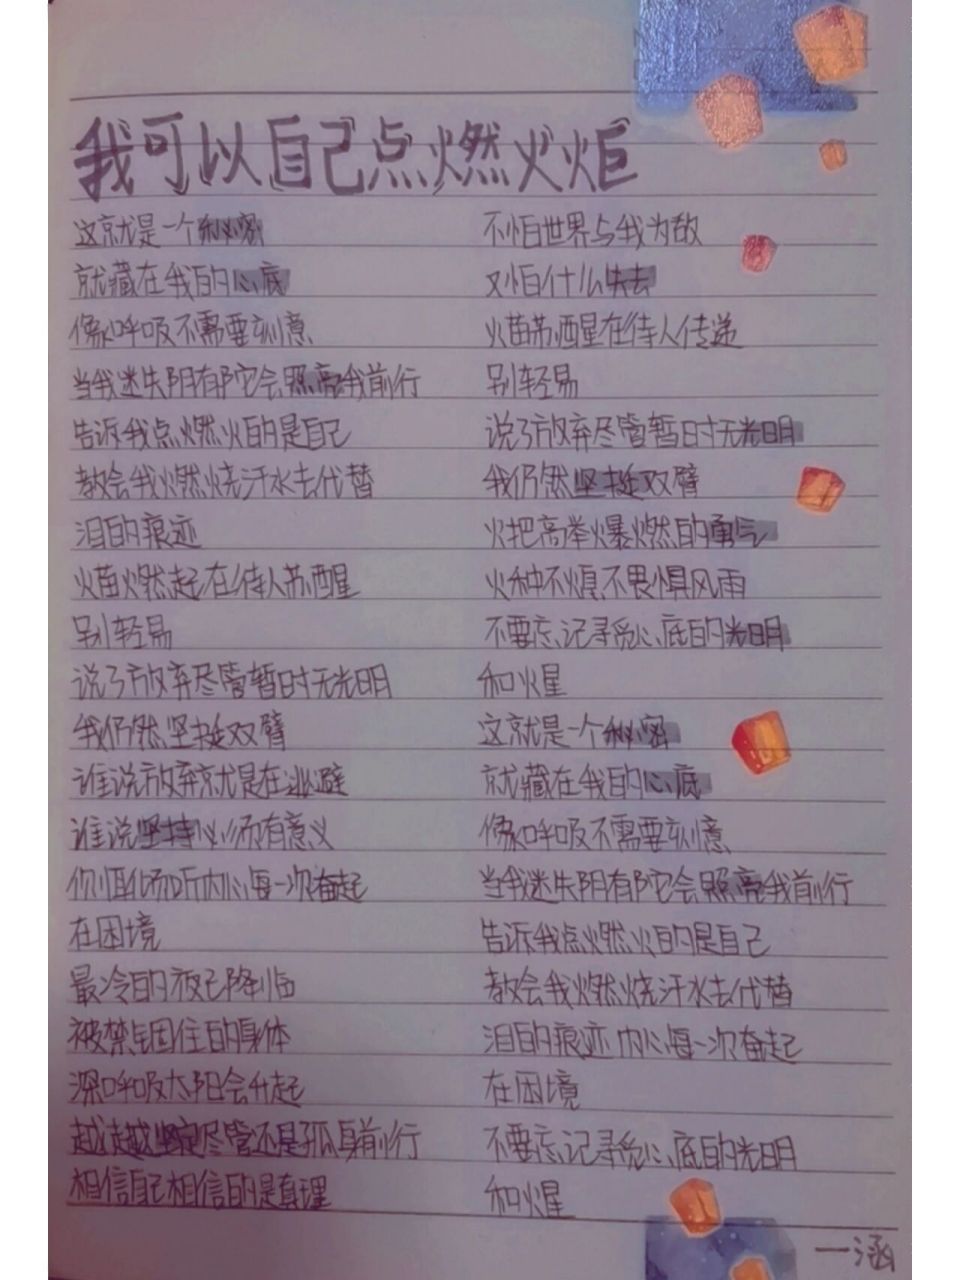 我可以自己点燃火炬
这就是一个秘密
就藏在我的心底
像呼吸不需要刻意
当我迷失阴郁它会照亮我前行
告诉我点燃火的是自己
教会我燃烧汗水去代替
泪的痕迹
火苗燃起在待人苏醒
别轻易
说了放弃尽管暂时无光明
我仍然坚挺双臂
谁说放弃就是在逃避
谁说坚持必须有意义
你恒听内心每一次奋起
在困境
最冷的夜已降临
被禁锢住的身体
深呼吸太阳会升起
越越坚定尽管还是孤身前行
相信自己相信的是真理
不怕世界与我为敌
又怕什么失去
火苗苏醒在待人传递
别轻易
说了放弃尽管暂时无光明
我仍然坚挺双臂
火把高举爆燃的勇气
火种不惧不畏惧风雨
不要忘记寻觅心底的光明
和火星
这就是一个秘密
就藏在我的心底
像呼吸不需要刻意
当我迷失阴郁它会照亮我前行
告诉我点燃火的是自己
教会我燃烧汗水去代替
泪的痕迹内心每一次奋起
在困境
不要忘记寻觅心底的光明
和火星
一涵